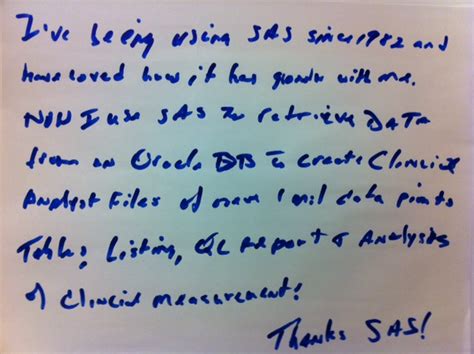 I've being using SAS since 1982 and
have loved how it has grown with me.
Now I use SAS to retrieve DATA
from an Oracle DB to create Clinical
Analyst Files of over 1 mil data points
Tables, Listing, QC Report & Analysis
of Clinical measurement!
Thanks SAS!